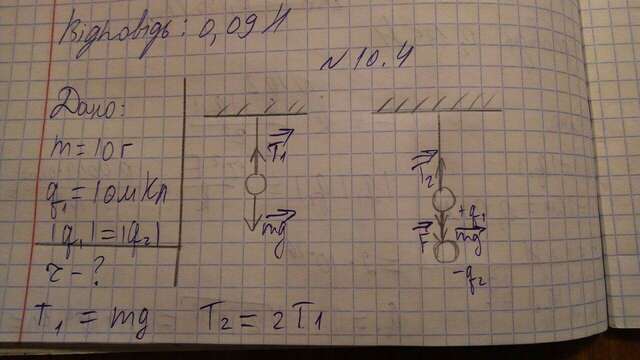 Відповідь: 0,09 Н
№ 10.4
Дано:
m = 10 г
q₁ = 10 мкКл
|q₁| = |q₂|
r - ?
T₁
mg
T₂
F
+q₁
mg
-q₂
T₁ = mg    T₂ = 2T₁